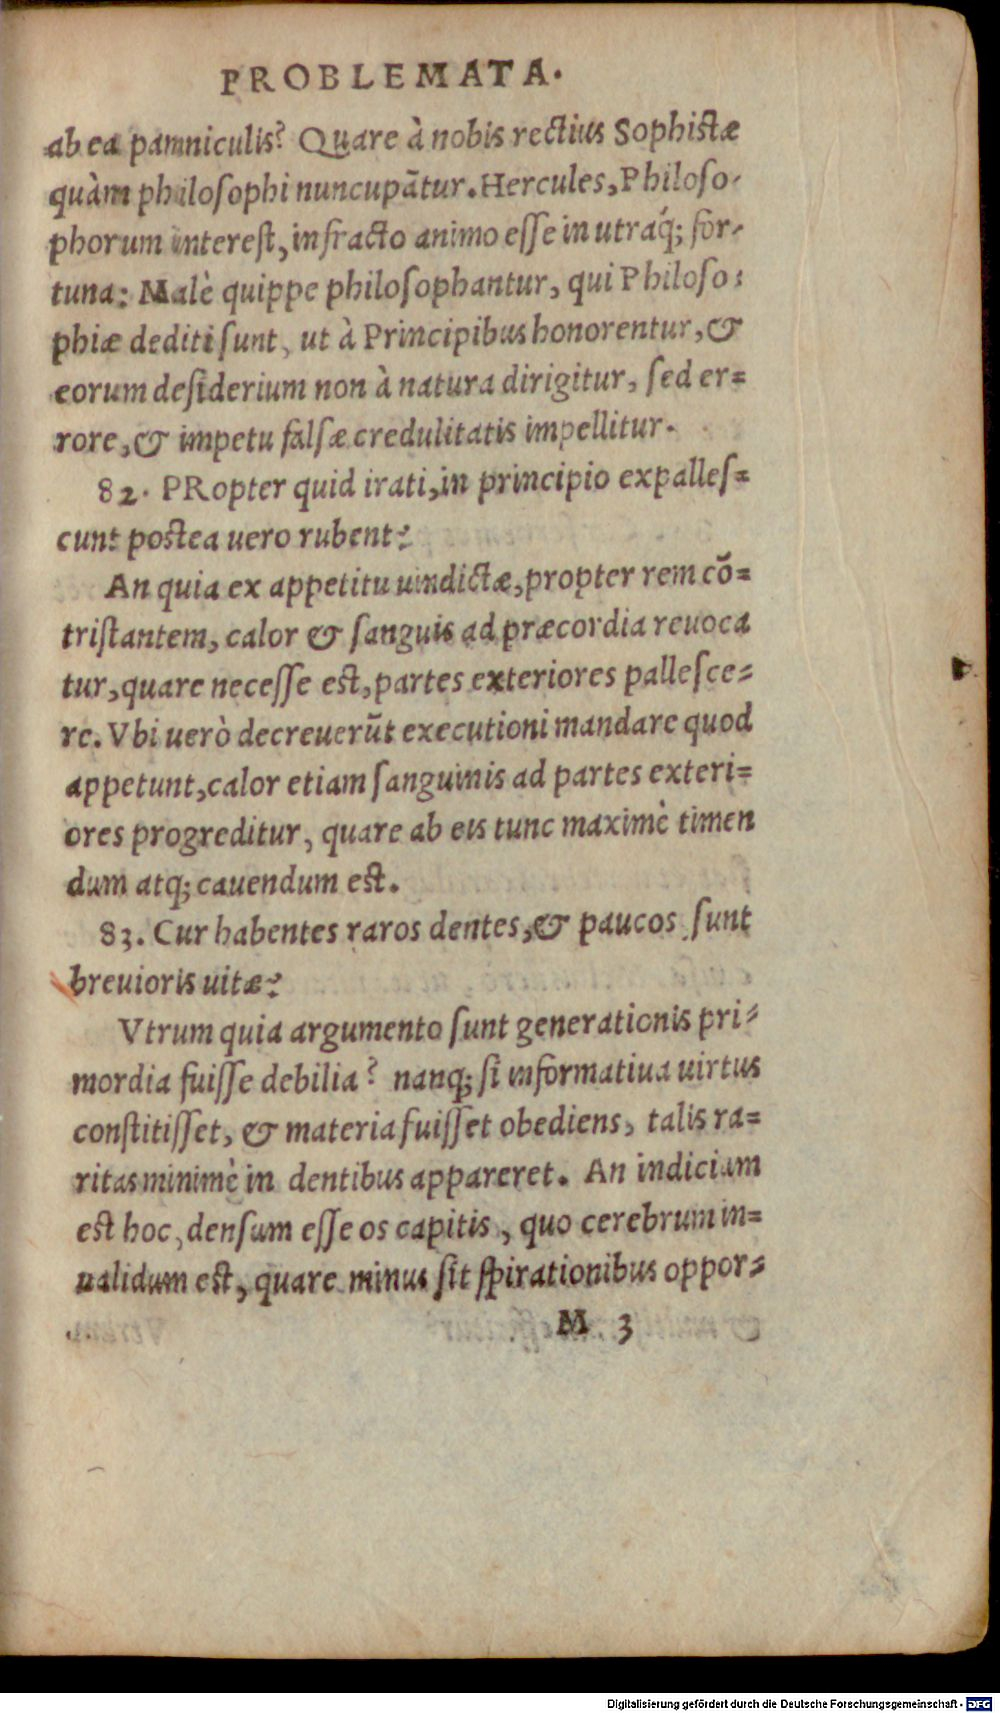 PROBLEMATA.
ab ea panniculis? Quare à nobis rectius Sophistæ
quàm philosophi nuncupãtur. Hercules, Philoso-
phorum interest, infracto animo esse in utraq́; for-
tuna: Malè quippe philosophantur, qui Philoso:
phiæ dediti sunt, ut à Principibus honorentur, &
eorum desiderium non à natura dirigitur, sed er=
rore, & impetu falsæ credulitatis impellitur.
82. PRopter quid irati, in principio expalles=
cunt postea uero rubent?
An quia ex appetitu uindictæ, propter rem cõ=
tristantem, calor & sanguis ad præcordia reuoca
tur, quare necesse est, partes exteriores pallesce=
re. Vbi uerò decreuerũt executioni mandare quod
appetunt, calor etiam sanguinis ad partes exteri=
ores progreditur, quare ab eis tunc maximè timen
dum atq; cauendum est.
83. Cur habentes raros dentes, & paucos sunt
breuioris uitæ?
Vtrum quia argumento sunt generationis pri=
mordia fuisse debilia? nanq; si informatiua uirtus
constitisset, & materia fuisset obediens, talis ra=
ritas minimè in dentibus appareret. An indicium
est hoc, densum esse os capitis, quo cerebrum in=
ualidum est, quare minus sit spirationibus oppor=
M 3
Digitalisierung gefördert durch die Deutsche Forschungsgemeinschaft - DFG